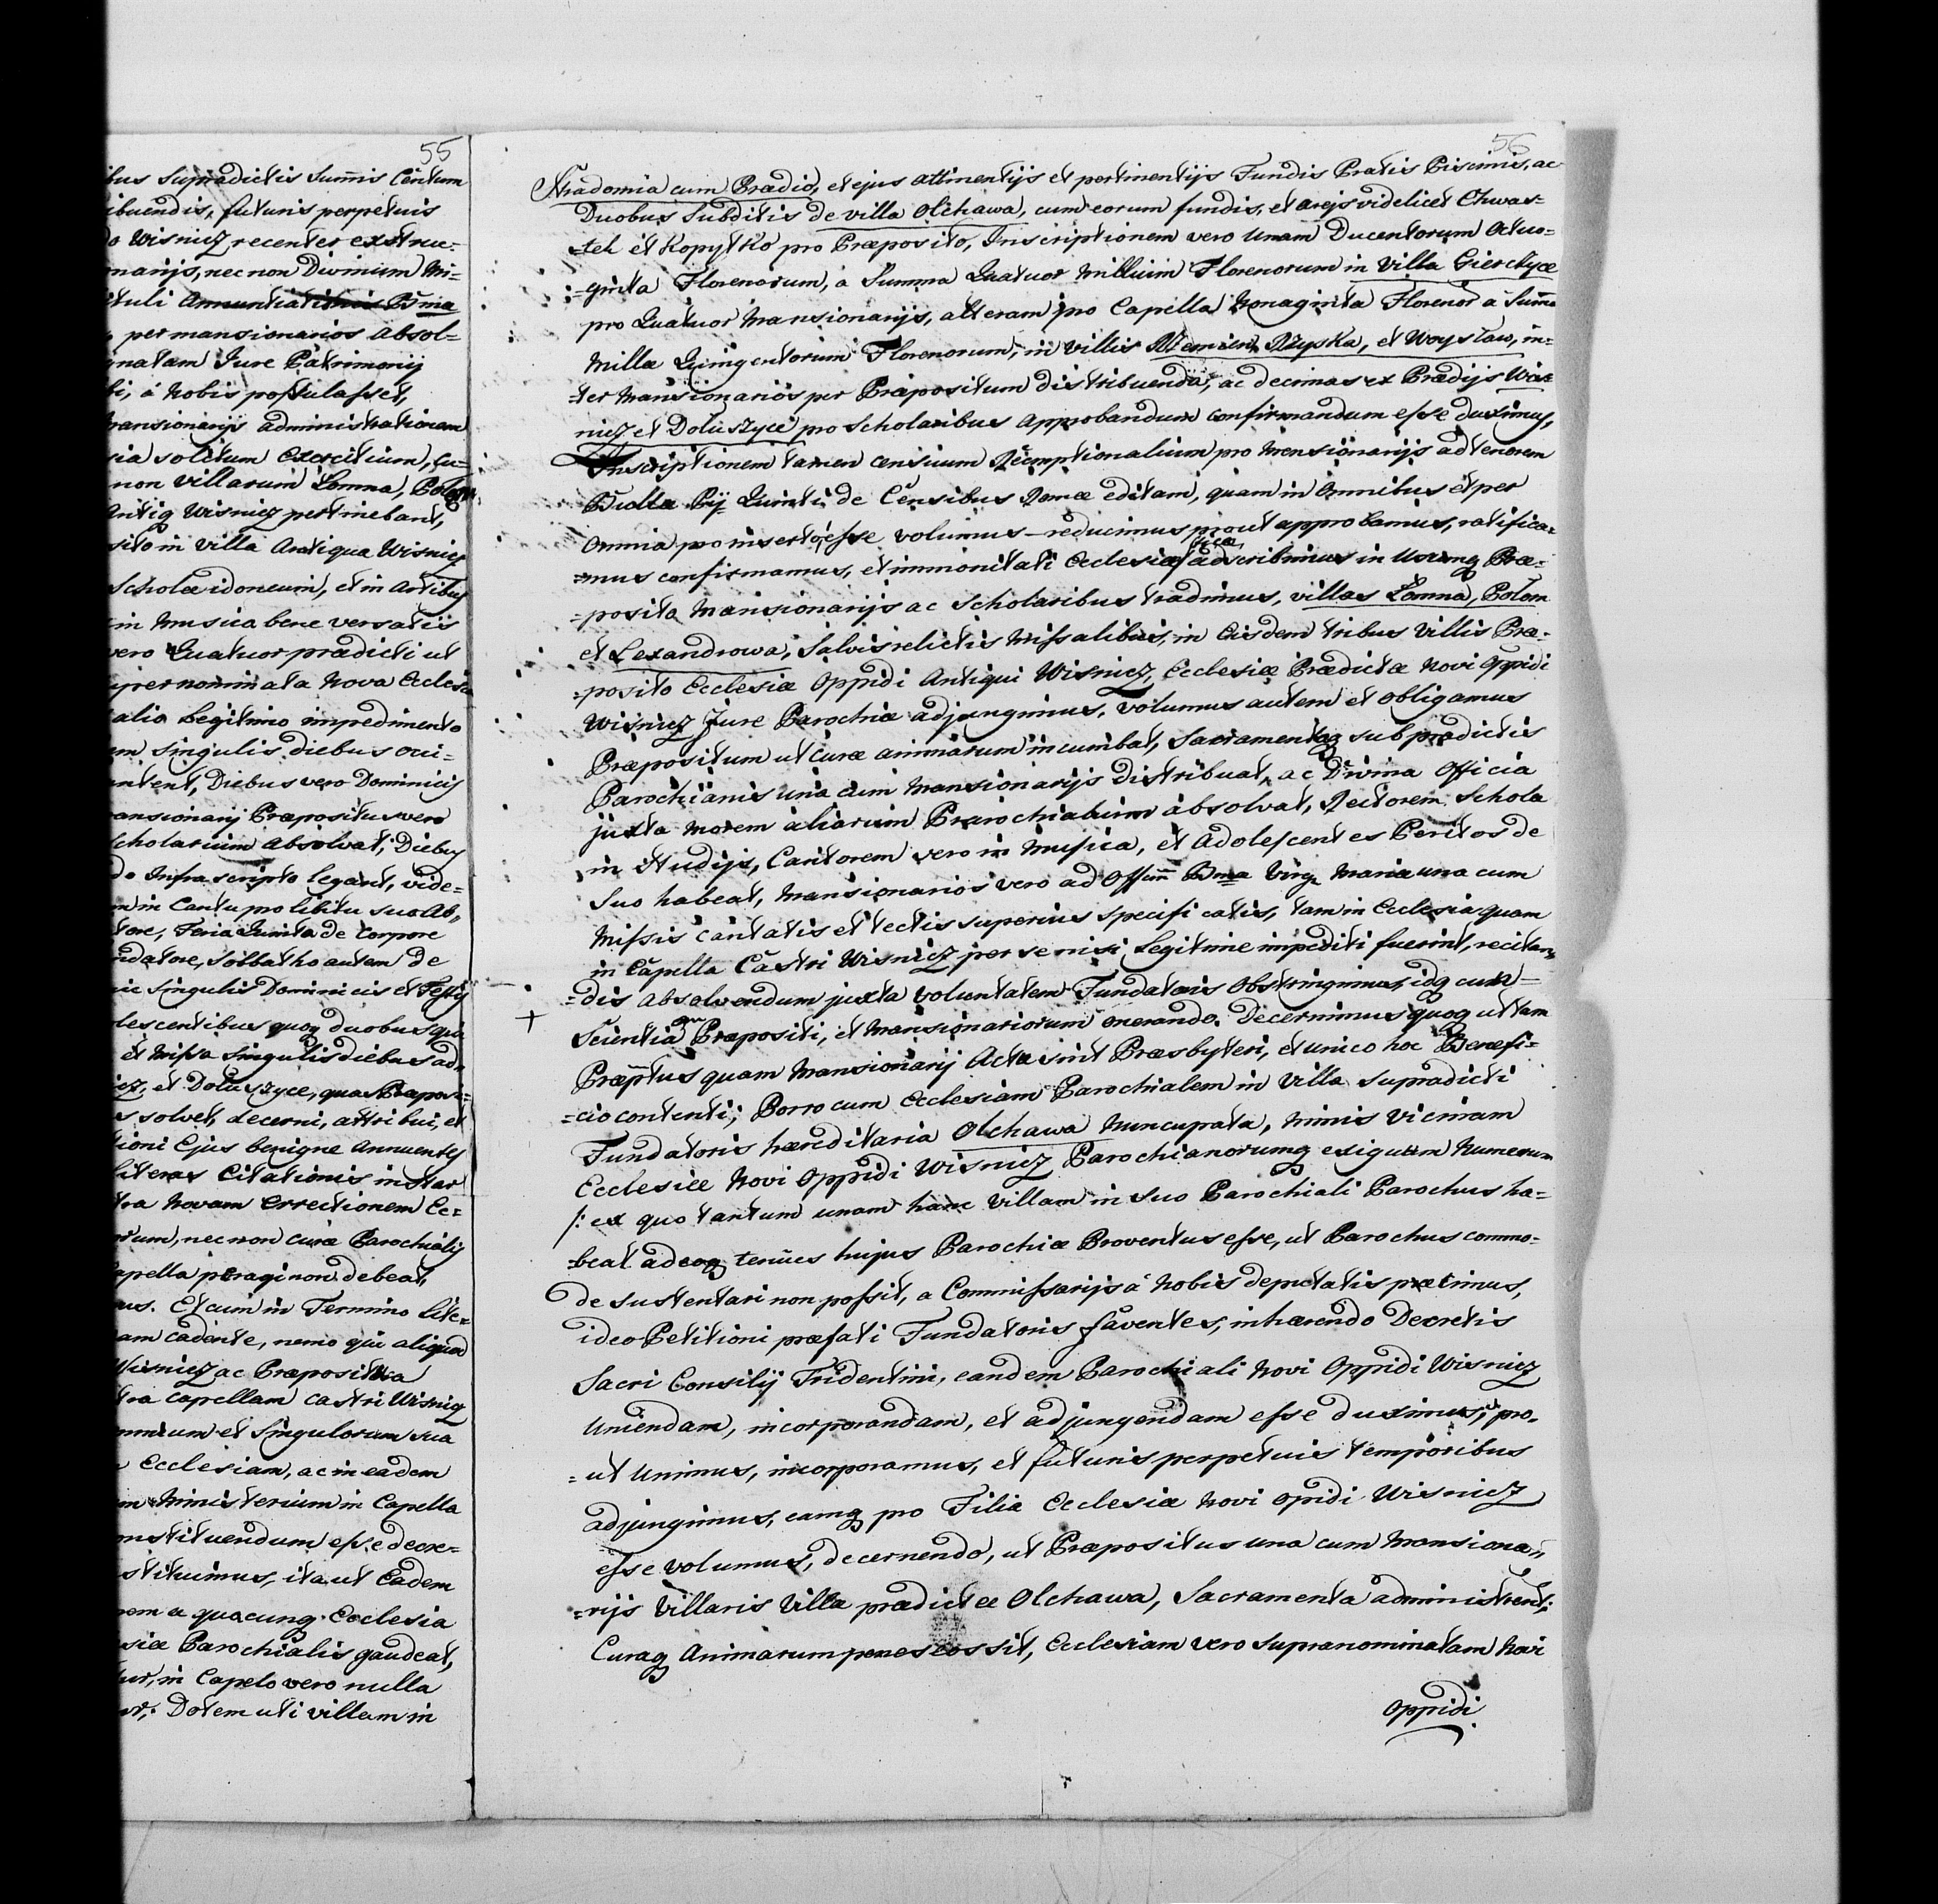 55
ibus Supradictis Sum̄is Centum
ibuendis, futuris perpetuis
do Wisnicz recenter exstruc=
narijs, nec non Divinum Mi=
ituli Annuntiationis B̄m̄a
per mansionarios absol=
gnatam Jure Patrimonij
ti, á Nobis postulasset,
ransionarijs administrationem
sia solitum exercitium, fu=
non villarum Łomna, Połom
Antiq Wisnicz pertinebant,
sito in villa Antiqua Wisnicz
Scholæ idoneum, et in Artibus
in Musica bene versatis
vero Quatuor prædicti ut
uper nominata Nova Ecclesia
alio Legitimo impedimento
em singulis diebus
intent, Diebus vero Dominicis
ansionarij Præpositus vero
cholarium Absolvat, Diebus
do Infra scripto legant, vide=
m in Cantu pro libitu suo ab,
tore, Feria Quinta de Corpore
ndatore, Sabbatho autem de
singulis Dominicis et Festis
lescentibus quoq duobus qui
et Missa singulis diebus ad,
icz, et Dołuszyce, quas Præposi=
s solvet, decerni, attribui, et
tioni Ejus benigne Annuentes
literas Citationis instar
tra Novam Errectionem Ec=
orum, nec non curæ Parochialis
apella peragi non debeat,
us. Et cum in Termino Lite=
am cadente, nemo qui aliquod
Wisnicz ac Præpositura
tra capellam castri Wisnicz
omnium et Singulorum sua
Ecclesiam, ac in eadem
m Ministerium in Capella
nstituendum esse decre=
stituimus, ita ut Eadem
em a quacunq Ecclesia
siæ Parochialis gaudeat,
tur, in Capelo vero nulla
ur, Dotem uti villam in
56
Stradomia cum Prædio, et ejus attinentijs et pertinentijs Fundis Pratis Piscinis, ac
Duobus Subditis de villa Olchawa, cum eorum fundis, et arejs videlicet Chwas=
tek et Kopytko pro Præposito, Inscriptionem vero Unam Ducentorum Octuo=
=ginta Florenorum, a Summa Quatuor Millium Florenorum in Villa Gierczyce
pro Quatuor Mansionarijs, alteram pro Capella Nonaginta Florenor a Sum̄a
Mille Quingentorum Florenorum, in villis Niemien Rzyska, et Woysław, in=
=ter Mansionarios per Præpositum distribuenda, ac decimas ex Prædijs Wis=
nicz et Dołuszyce pro Scholaribus Approbandum confirmandum esse duximus,
Inscriptionem tamen censuum Reemptionalium pro Mansionarijs ad tenorem
Bulla Pij Quinti de Censibus Romæ editam, quam in Omnibus et per
Omnia pro inserto esse volumus reducimus prout approbamus, ratifica=
=mus confirmamus, et immonitati Ecclesias ticæ adscribimus in Usumq Præ=
=posito Mansionarijs ac Scholaribus tradimus, villas Łomna, Połom
et Lexandrowa, salvis relictis Missalibus, in Eisdem tribus Villis Præ=
=posito Ecclesiæ Oppidi Antiqui Wisnicz, Ecclesiæ Prædictæ Novi Oppidi
Wisnicz Jure Parochiæ adjungimus, volumus autem et obligamus
Præpositum ut curæ animarum incumbat, Sacramentaq sub prædictis
Parochianis una cum Mansionarijs distribuat, ac Divina Officia
juxta morem aliarum Prarochiarum absolvat, Rectorem Schola
in Studijs, Cantorem vero in Musica, et Adolescentes Peritos de
Suo habeat, Mansionarios vero ad Off̄m̄ B̄m̄a Virg Mariæ una cum
Missis cantatis et lectis superius specificatis, tam in Ecclesia quam
in Capella Castri Wisnicz per se nisi Legitime impediti fuerint, recitan,
=dis absolvendum juxta voluntatem Fundatoris Obstringimus, idq cun=
+ Scientia Præpositi, et Mansionariorum onerando. Decernimus quoq ut tam
Præptus quam Mansionarij Actu sint Præsbyteri, et unico hoc Benefi=
=cio contenti; Porro cum Ecclesiam Parochialem in villa Supradicti
Fundatoris hæreditaria Olchawa Nuncupata, nimis vicinam
Ecclesiæ Novi Oppidi Wisnicz Parochianorumq exiguum Numerum
/: ex quo tantum unam hanc Villam in suo Parochiali Parochus ha=
=beat adeoq tenues hujus Parochiæ Proventus esse, ut Parochus commo=
de sustentari non possit, a Commissarijs á Nobis deputatis
ideo Petitioni præfati Fundatoris faventes, inhærendo Decretis
Sacri Consilij Tridentini, eandem Parochiali Novi Oppidi Wisnicz
Uniendam, incorporandam, et adjungendam esse duximus, pro,
=ut Unimus, incorporamus, et futuris perpetuis temporibus
adjungimus, eamq pro Filia Ecclesiæ Novi opidi Wisnicz
esse volumus, decernendo, ut Præpositus una cum Mansiona,,
=rijs Villaris Villa prædictæ Olchawa, Sacramenta administrent,
Curaq Animarum penes eos sit, Ecclesiam vero supranominatam Novi
Oppidi